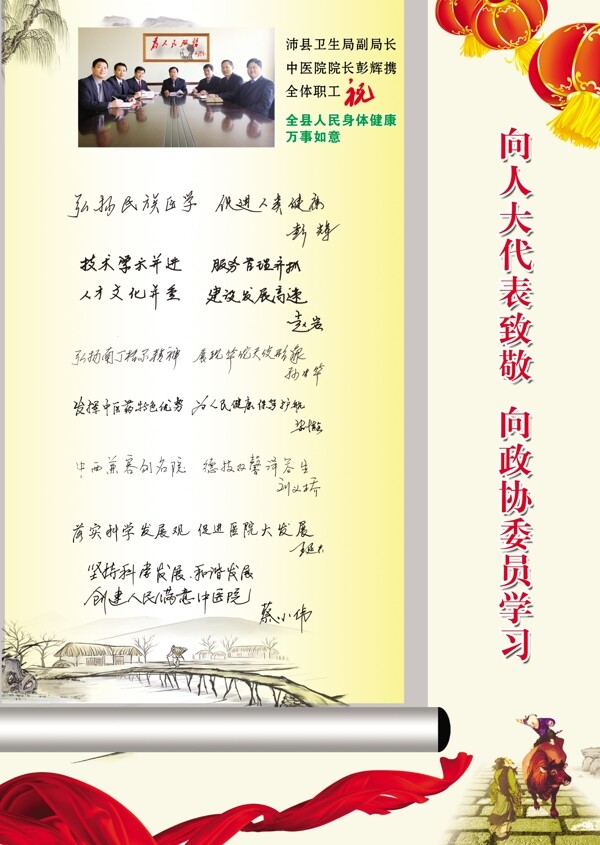 为人民服务
沛县卫生局副局长
中医院院长彭辉携
全体职工祝
全县人民身体健康
万事如意
弘扬民族医学 促进人类健康
彭辉
技术学术并进 服务管理并抓
人才文化并重 建设发展高速
赵岩
弘扬南丁格尔精神 展现华佗天使形象
孙中华
发挥中医药特色优势 为人民健康保驾护航
中西兼容创名院 德技双馨泽苍生
刘义桥
落实科学发展观 促进医院大发展
坚持科学发展、和谐发展
创建人民满意中医院
蔡小伟
向人大代表致敬 向政协委员学习